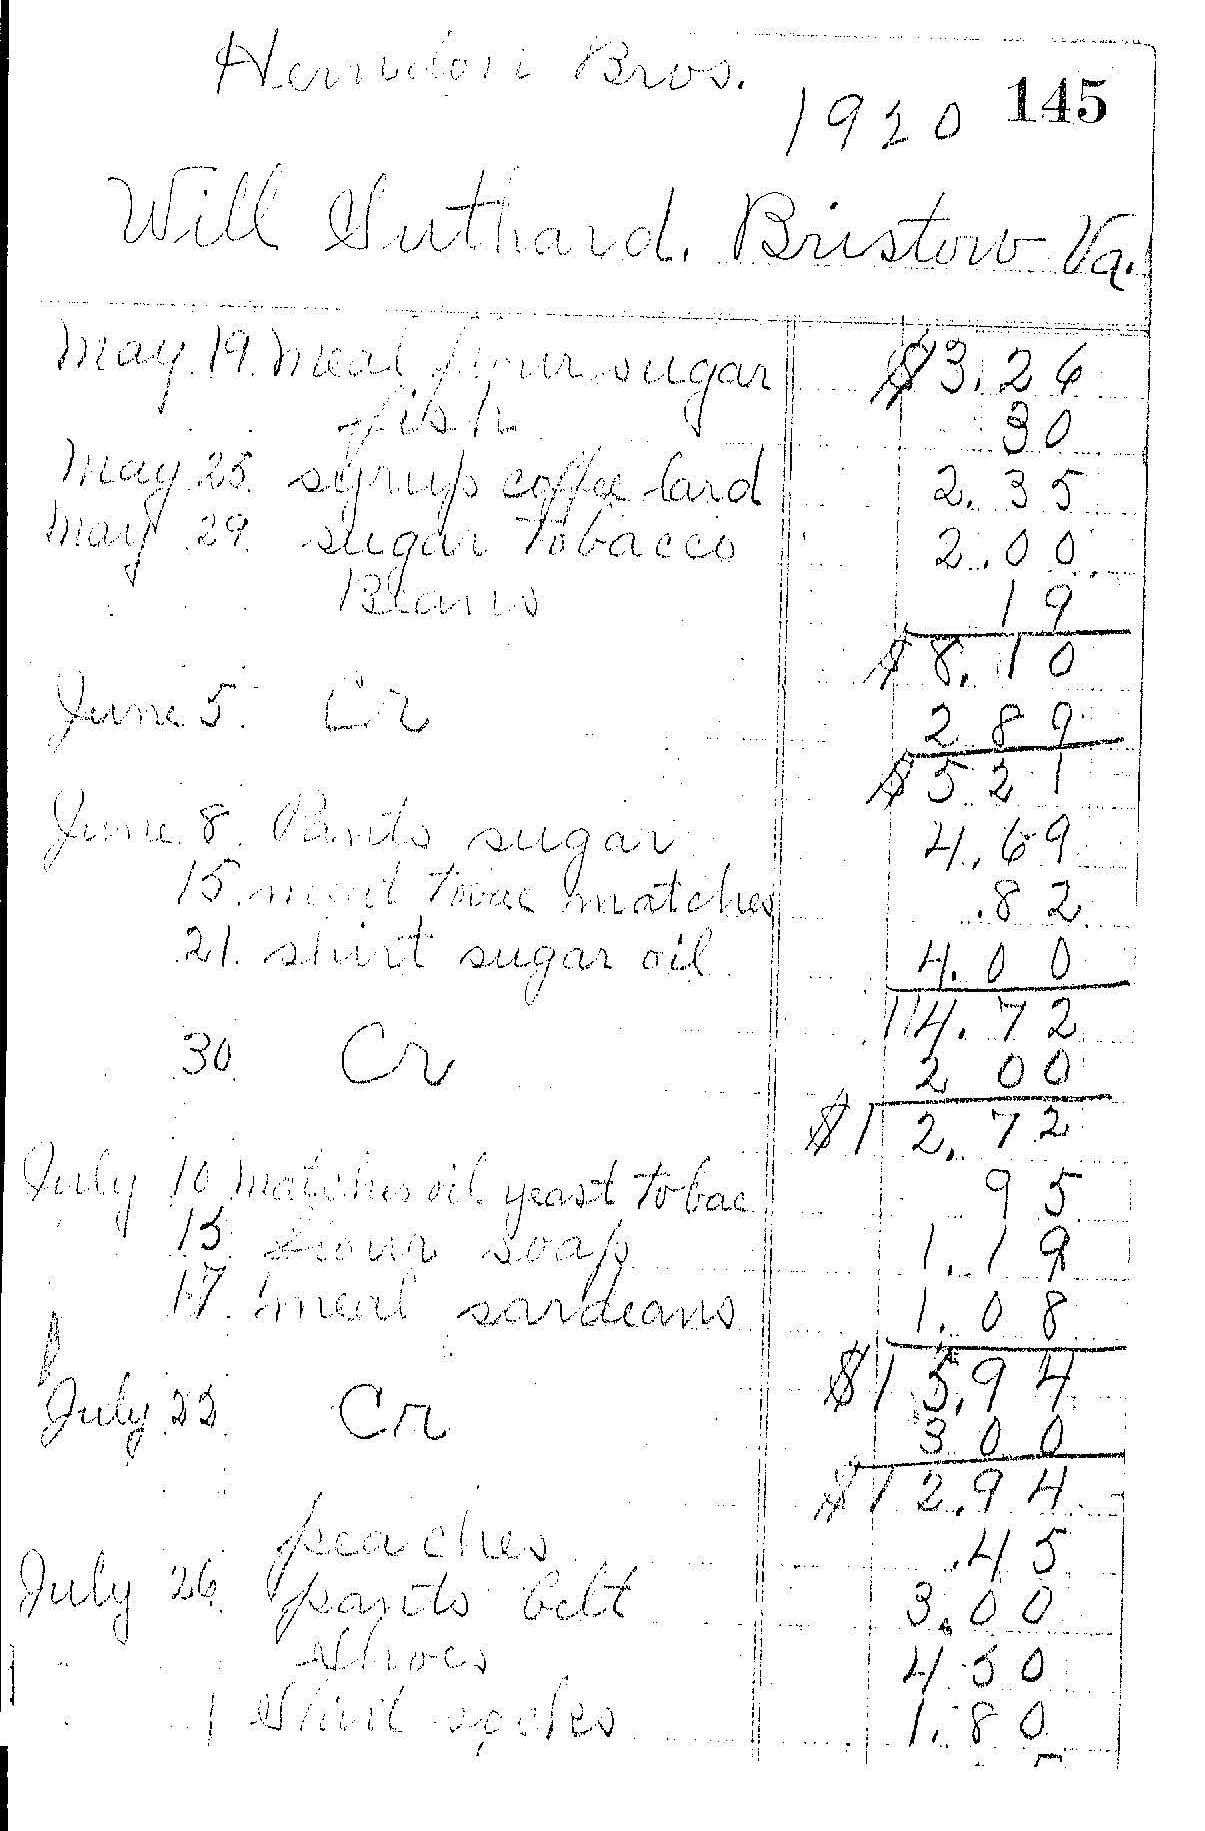 Herndon Bros.
1920 145
Will Suthard. Bristow Va.
May. 19. Meal flour sugar $3.26
fish 30
May 25. syrup coffee lard 2.35
May 29. sugar tobacco 2.00
Beans 19
$8.10
June 5. Cr 2 89
$5 21
June 8. Pants sugar 4.69
15. meal tobac matches .82
21. shirt sugar oil 4.00
14.72
30 Cr 2 00
$12.72
July 10 Matches oil yeast tobac 95
15. flour soap 1.19
17. meal sardeans 1.08
$15.94
July 22 Cr 3 00
$12.94
peaches .45
July 26 pants belt 3.00
Shoes 4 50
1 Shirt socks 1.80